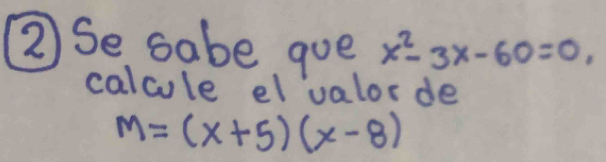 ② Se sabe que x²-3x-60=0,
calcule el valor de
M=(x+5)(x-8)